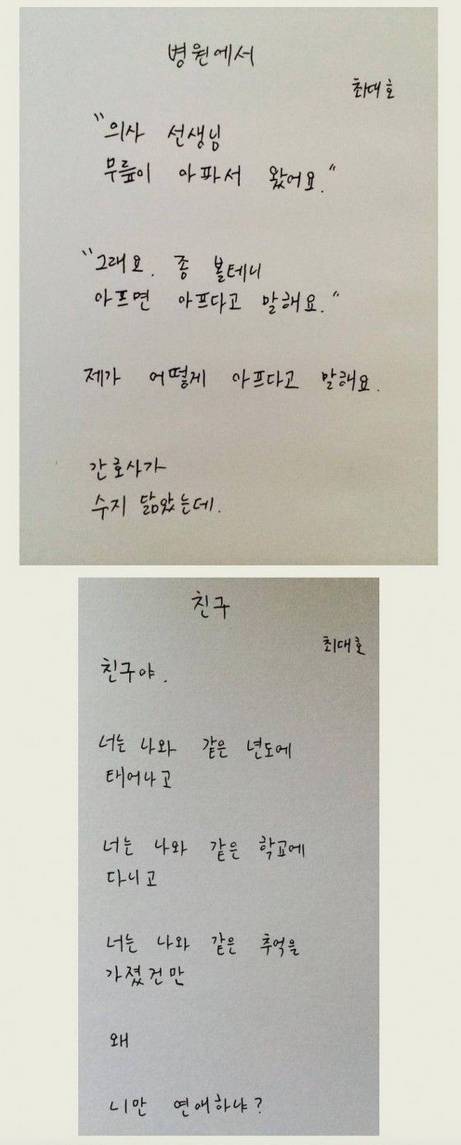 병원에서
최대호
"의사 선생님
무릎이 아파서 왔어요."
"그래요. 좀 볼테니
아프면 아프다고 말해요."
제가 어떻게 아프다고 말해요.
간호사가
수지 닮았는데.
친구
최대호
친구야.
너는 나와 같은 년도에
태어나고
너는 나와 같은 학교에
다니고
너는 나와 같은 추억을
가졌건만
왜
니만 연애하냐?